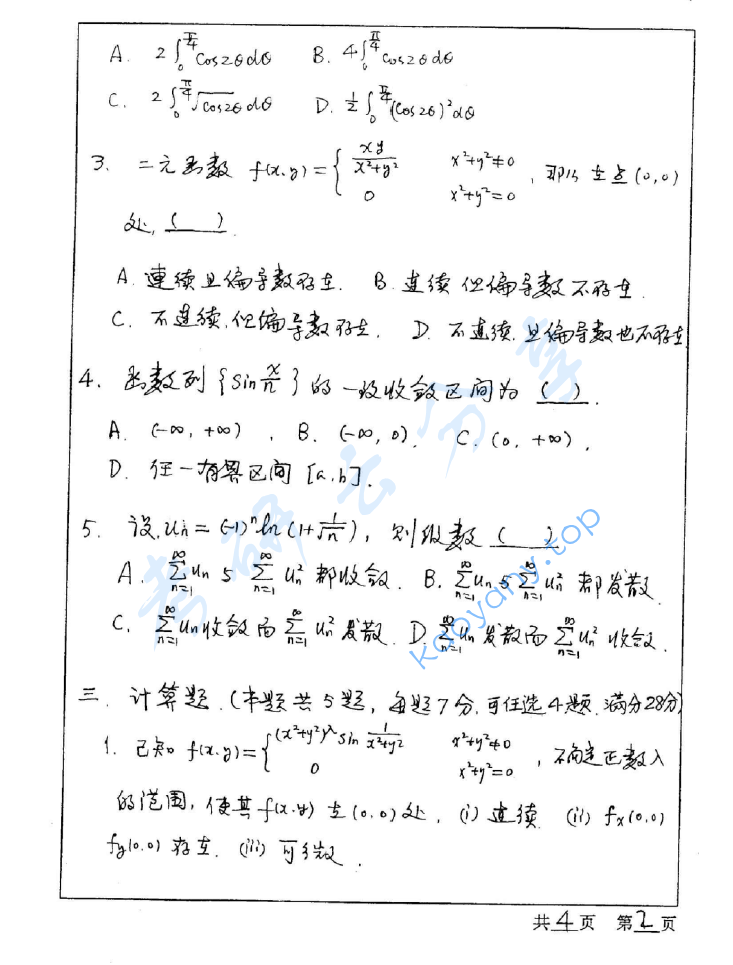 A. 2∫₀^{π/4} cos2θdθ B. 4∫₀^{π/4} cos2θdθ
C. 2∫₀^{π/4} √cos2θ dθ D. ½∫₀^{π/4} (cos2θ)²dθ
3. 二元函数 f(x,y) = { xy/(x²+y²) x²+y²≠0 ; 0 x²+y²=0 , 那么在点(0,0)
处, ( ).
A. 連续且偏导数存在. B. 连续但偏导数不存在.
C. 不连续,但偏导数存在. D. 不连续,且偏导数也不存在
4. 函数列{sin x/n}的一致收敛区间为 ( ).
A. (-∞, +∞), B. (-∞, 0), C. (0, +∞),
D. 任一有界区间 [a,b].
5. 设 uₙ = (-1)ⁿ ln(1+1/√n), 则级数 ( )
A. ∑_{n=1}^∞ uₙ 与 ∑_{n=1}^∞ uₙ² 都收敛. B. ∑_{n=1}^∞ uₙ 与 ∑_{n=1}^∞ uₙ² 都发散
C. ∑_{n=1}^∞ uₙ 收敛而 ∑_{n=1}^∞ uₙ² 发散. D. ∑_{n=1}^∞ uₙ 发散而 ∑_{n=1}^∞ uₙ² 收敛.
三. 计算题. (本题共5题, 每题7分, 可任选4题. 满分28分)
1. 已知 f(x,y) = { (x²+y²)^λ sin 1/(x²+y²) x²+y²≠0 ; 0 x²+y²=0 , 确定正数λ
的范围, 使其f(x,y) 在(0,0)处, (i) 连续 (ii) fx(0,0)
fy(0,0) 存在. (iii) 可微.
共4页 第2页
考研云分享
kaoyany.top